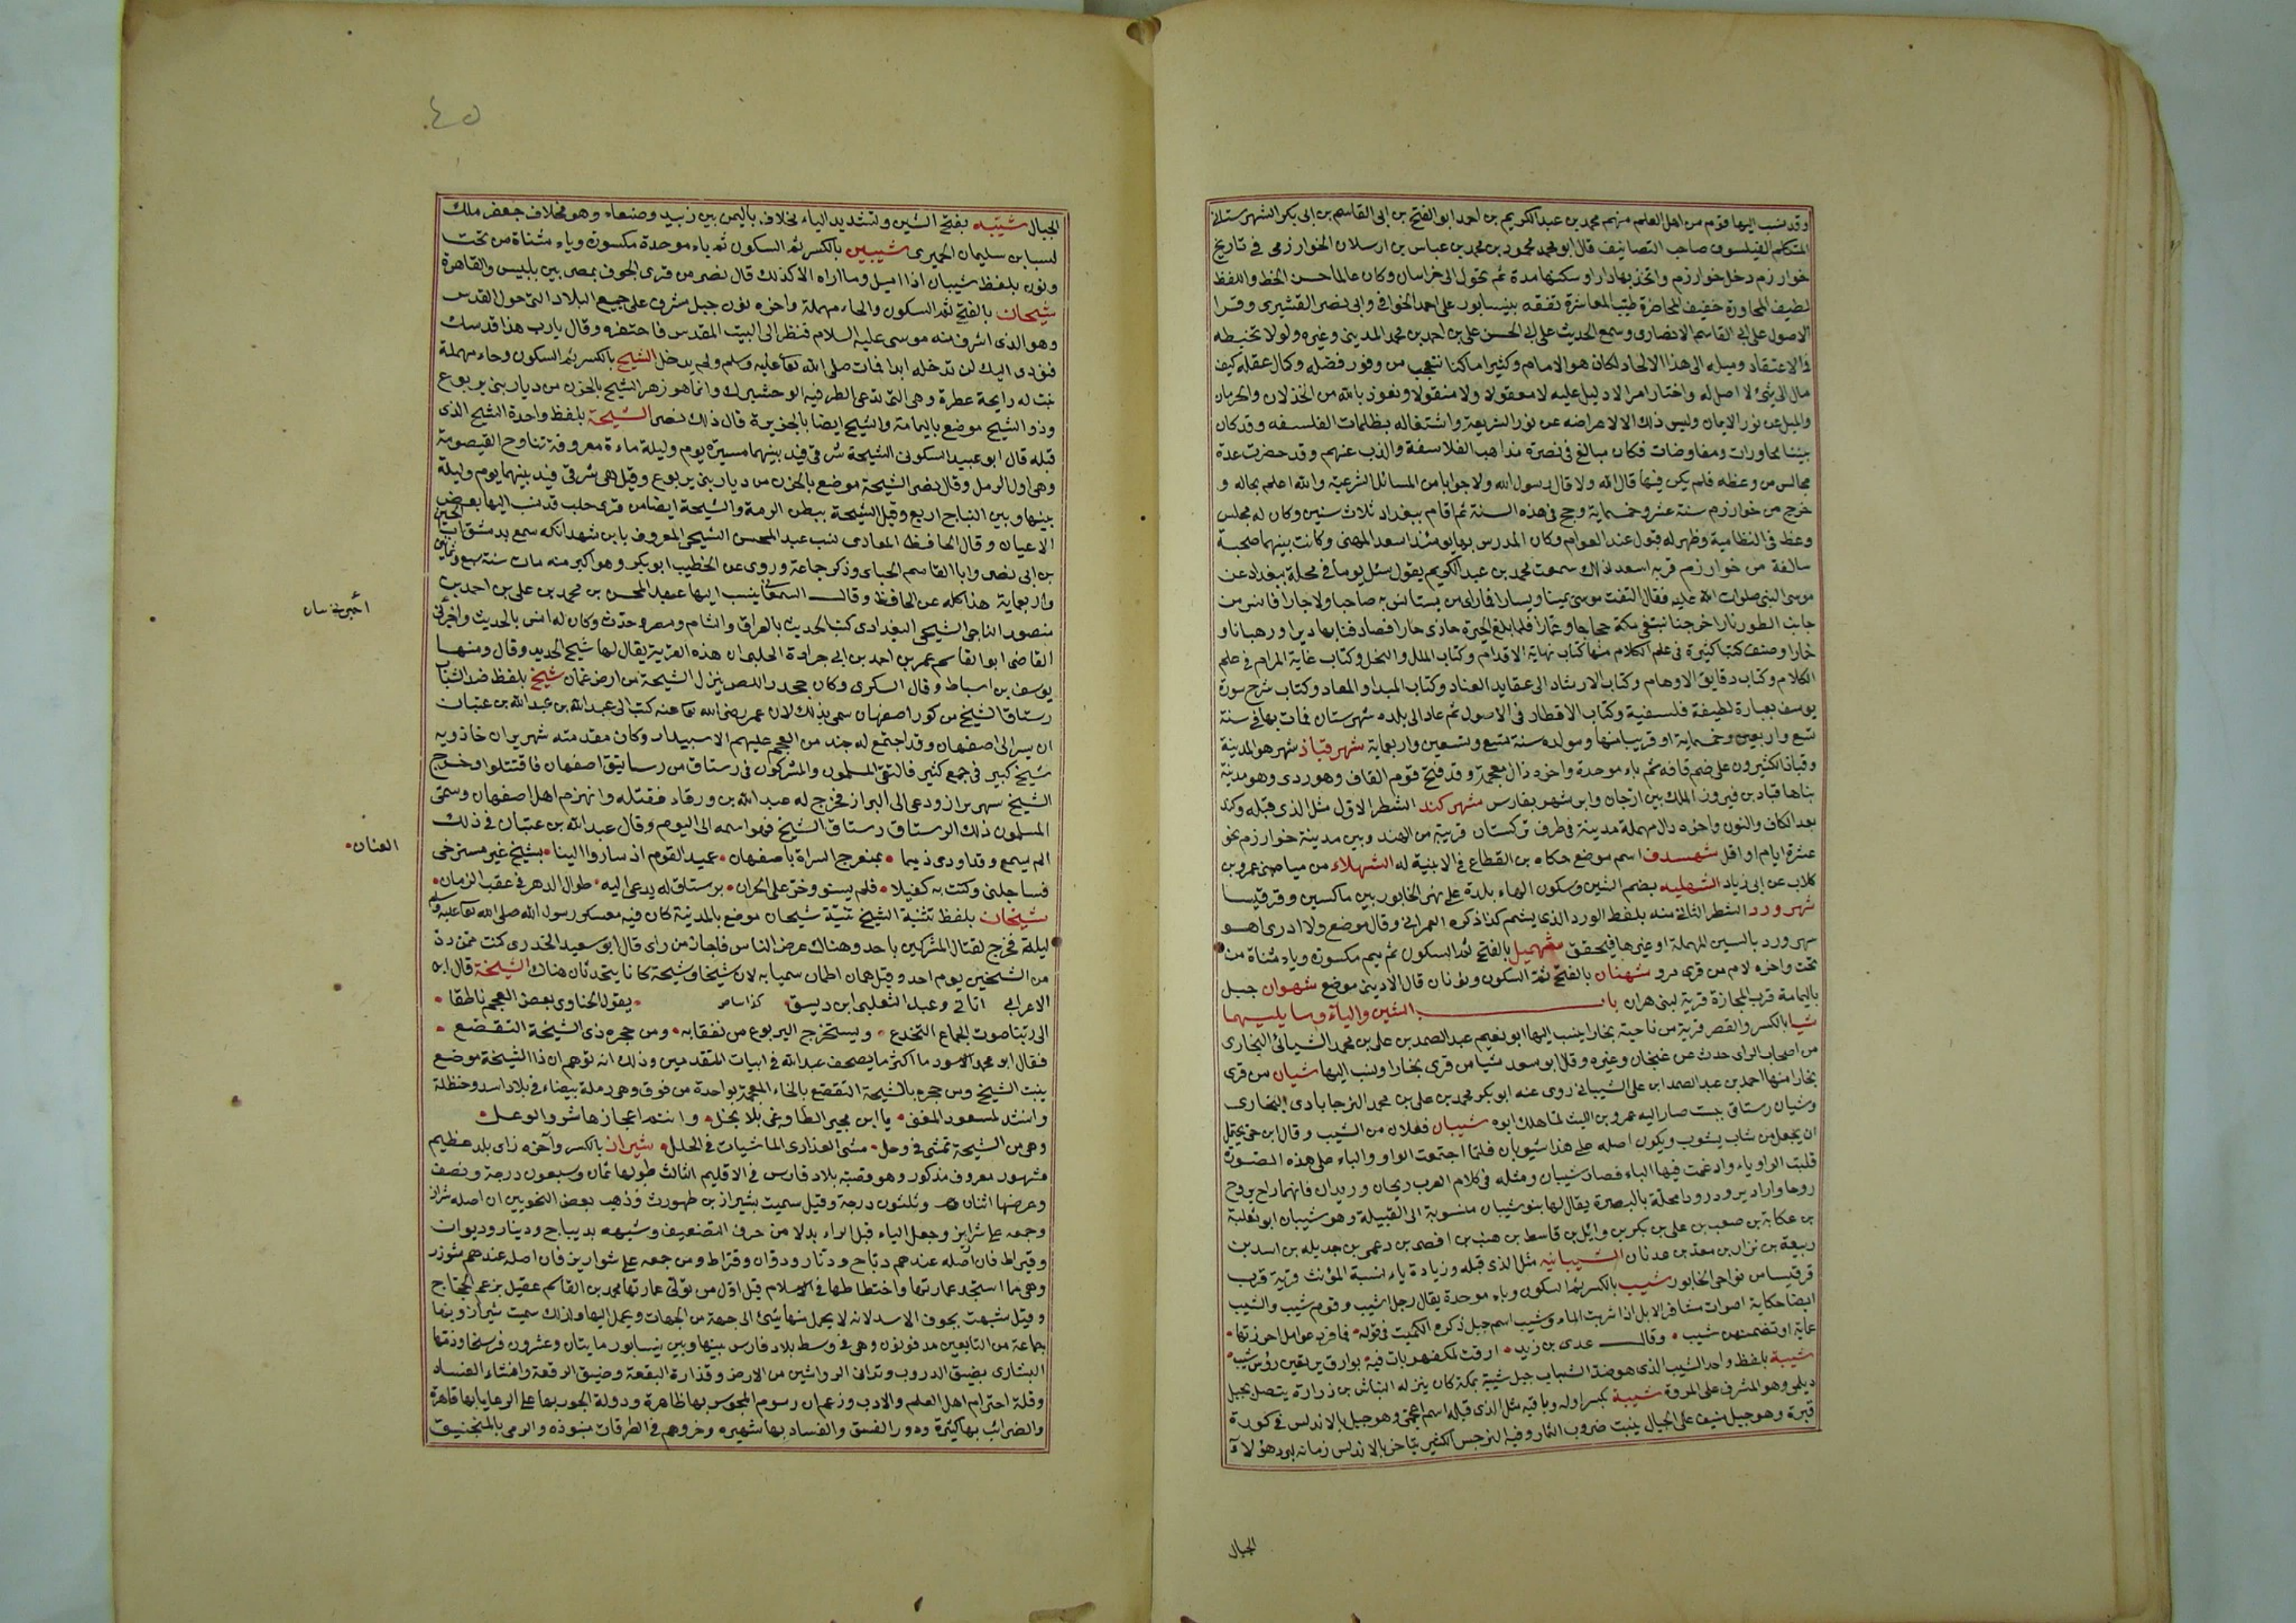 وقد نسب اليها قوم من اهل العلم منهم محمد بن عبد الكريم بن احمد ابو الفتح بن ابى القاسم بن ابى بكر الشهرستانى
المتكلم الفيلسوف صاحب التصانيف قال ابو محمد محمود بن محمد بن عباس بن ارسلان الخوارزمى فى تاريخ
خوارزم دخل خوارزم واتخذ بها دارا وسكنها مدة ثم تحول الى خراسان وكان عالما حسن الخط واللفظ
لطيف المحاورة خفيف المحاضرة طيب المعاشرة تفقه بنيسابور على احمد الخوافى وابى نصر القشيرى وقرا
الاصول على ابى القاسم الانصارى وسمع الحديث على ابى الحسن على بن احمد بن محمد المدينى وغيره ولولا تخبطه
فى الاعتقاد وميله الى هذا الالحاد لكان هو الامام وكثيرا ما كنا نتعجب من وفور فضله وكمال عقله كيف
مال الى شئ لا اصل له واختار امرا لا دليل عليه لا معقولا ولا منقولا ونعوذ بالله من الخذلان والحرمان
والميل عن نور الايمان وليس ذلك الا لاعراضه عن نور الشريعة واشتغاله بظلمات الفلسفه وقد كان
بيننا محاورات ومفاوضات فكان يبالغ فى نصرة مذاهب الفلاسفة والذب عنهم وقد حضرت عدة
مجالس من وعظه فلم يكن فيها قال الله ولا قال رسول الله ولا جواب من المسائل الشرعية والله اعلم بحاله و
خرج من خوارزم سنة عشر وخمسماية وحج فى هذه السنة ثم اقام ببغداد ثلاث سنين وكان له مجلس
وعظ فى النظامية وظهر له قبول عند العوام وكان المدرس بها يومئذ اسعد الميهنى وكانت بينهما صحبة
سالفة من خوارزم قربه اسعد لذلك سمعت محمد بن عبد الكريم يقول سئل يوما فى محلة ببغداد عن
موسى النبى صلوات الله عليه فقال التفت موسى يمينا ويسارا فما راى من يستانس به صاحبا ولا جارا فانس من
جانب الطور نارا خرجنا نبتغى مكة حجاجا وعمارا فلما بلغ الحيرة حاذى جارا فصادفنا بها ديرا ورهبانا و
خمارا وصنف كتبا كثيرة فى علم الكلام منها كتاب نهاية الاقدام وكتاب الملل والنحل وكتاب غاية المرام فى علم
الكلام وكتاب دقايق الاوهام وكتاب الارشاد الى عقايد العناد وكتاب المبدا والمعاد وكتاب شرح سورة
يوسف بعبارة لطيفة فلسفية وكتاب الاقطار فى الاصول ثم عاد الى بلده شهرستان فمات بها فى سنة
تسع واربعين وخمسماية او قريبا منها ومولده سنة تسع وتسعين واربعماية شهر قباذ شهر هو المدينة
وقباذ الكثيرون على ضم قافه ثم باء موحدة واخره ذال معجمة وقد فتح قوم القاف وهو ردى وهو مدينة
بناها قباد بن فيروز الملك بين ارجان وابرشهر بفارس شهركند الشطر الاول مثل الذى قبله وكند
بعد الكاف والنون واخره دال مهملة مدينة فى طرف تركستان قريبة من الهند وبين مدينة خوارزم نحو
عشرة ايام او اقل شهسدف اسم موضع حكاه بن القطاع فى الابنية له الشهلاء من مياه بنى عمرو بن
كلاب عن ابى زياد الشهلية بضم الشين وسكون الهاء بلدة على نهر الخابور بين ماكسين وقرقيسا
شهرورد الشطر الثانى منه بلفظ الورد الذى يشم كذا ذكره العمرانى وقال موضع ولا ادرى اهو
سهرورد بالسين المهملة او غيرها فيحقق شهميل بالفتح ثم السكون ثم ميم مكسورة وياء مثناة من
تحت واخره لام من قرى مرو شهنان بالفتح ثم السكون ونونان قال الاديبى موضع شهوان جبل
باليمامة قرب المجازة قرية لبنى هزان باب الشين والياء وما يليهما
شيا بالكسر والقصر قرية من ناحية بخارا ينسب اليها ابو نعيم عبد الصمد بن على بن محمد الشيائى البخارى
من اصحاب الراى حدث عن غنجان وغيره وقال ابو سعد شيا من قرى بخارا ونسب اليها شيان من قرى
بخارا منها احمد بن عبد الصمد ابن على الشيبانى روى عنه ابو بكر محمد بن على بن محمد النرجابادى البخارى
وشيان رستاق ببست صار اليه عمرو بن الليث لما هلك ابوه شيبان فعلان من الشيب وقال ابن جنى يحتمل
ان يجعل من شاب يشوب ويكون اصله على هذا شيوبان فلما اجتمعت الواو والياء على هذه الصورة
قلبت الواو ياء وادغمت فيها الياء فصار شيبان ومثله فى كلام العرب ريحان وريدان فانهما راح يروح
روحا وراد يرود رودا محلة بالبصرة يقال لها بنو شيبان منسوبة الى القبيلة وهو شيبان ابو ثعلبة
بن عكابة بن صعب بن على بن بكر بن وائل بن قاسط بن هنب بن افصى بن دعمى بن جديله بن اسد بن
ربيعة بن نزار بن معد بن عدنان الشيبانيه مثل الذى قبله وزيادة ياء نسبة المؤنث قرية قرب
قرقيسا من نواحى الخابور شيب بالكسر ثم السكون وباء موحدة يقال رجل اشيب وقوم شيب والشيب
ايضا حكاية اصوات مشافر الابل اذا شربت الماء وشيب اسم جبل ذكره الكميت فى قوله فما فرد عوامل احرزتها
عماية او تضمنهن شيب وقال عدى بن زيد ارقت لمكفهر بات فيه بوارق يرتقين رؤس شيب
شيبة بلفظ واحد الشيب الذى هو ضد الشباب جبل شيبة بمكة كان ينزله النباش بن زرارة يتصل بجبل
ديلمى وهو المشرف على المروة شيبة بكسر اوله وباقيه مثل الذى قبله اسم اعجمى وهو جبل بالاندلس فى كورة
قبرة وهو جبل منيف على الجبال ينبت ضروب الثمار وفيه النرجس الكثير يتاخر بالاندلس زمانه لبرد هؤلاء
الجبال
٤٥
الجبال شيبه بفتح الشين وتشديد الياء مخلاف باليمن بين زبيد وصنعاء وهو مخلاف جعفر ملك
لسبا بن سليمان الحميرى شيبين بالكسر ثم السكون ثم باء موحدة مكسورة وياء مثناة من تحت
ونون بلفظ شيبان اذا اميل وما اراه الا كذلك قال نصر من قرى الحوف بمصر بين بلبيس والقاهرة
شيحان بالفتح ثم السكون والحاء مهملة واخره نون جبل مشرف على جميع البلاد التى حول القدس
وهو الذى اشرف منه موسى عليه السلام فنظر الى البيت المقدس فاحتقره وقال يا رب هذا قدسك
فنودى اليك لن تدخله ابدا فمات صلى الله تعا عليه وسلم ولم يدخل الشيح بالكسر ثم السكون وحاء مهملة
نبت له رايحة عطرة وهى التى تدعى الطرفيه الوحشيزك وانما هو زهر الشيح بالحزن من ديار بنى يربوع
وذو الشيح موضع باليمامة والشيح ايضا بالجزيرة قال ذلك نصر الشيحة بلفظ واحدة الشيح الذى
قبله قال ابو عبيد السكونى الشيحة شرقى فيد بينهما مسيرة يوم وليلة ماءة معروفة تناوح القيصومة
وهى اول الرمل وقال نصر الشيحة موضع بالحزن من ديار بنى يربوع وقيل هى شرقى فيد بينهما يوم وليلة
بينها وبين النباج اربع وقيل الشيحة ببطن الرمة والشيحة ايضا من قرى حلب قد نسب اليها بعض
الاعيان وقال الحافظ المعادى نسب عبد المحسن الشيحى المعروف بابن شهدانكه سمع بدمشق ابا الحسين
بن ابى نصر وابا القاسم الحباى وذكر جماعة وروى عن الخطيب ابو بكر وهو اكبر منه مات سنة سبع وثمانين
واربعماية هذا كله عن الحافظ وقال السمعانى ينسب اليها عبد المحسن بن محمد بن على بن احمد بن
منصور الناجى الشيحى البغدادى كتب الحديث بالعراق والشام ومصر وحدث وكان له انس بالحديث واخبرنى
القاضى ابو القاسم عمر بن احمد بن ابى جرادة الحلبى ان هذه القرية يقال لها شيح الحديد وقال ومنها
يوسف بن اسباط وقال السكرى وكان جحدر اللص ينزل الشيحة من ارض عمان شيخ بلفظ ضد الشاب
رستاق الشيخ من كور اصفهان سمى بذلك لان عمر رضى الله تعا عنه كتب الى عبد الله بن عبد الله بن عتبان
ان يسير الى اصفهان وقد اجتمع له جند من العجم عليهم الاسبيدار وكان مقدمته شهربران خاذويه
شيخ كبير فى جمع كثير فالتقى المسلمون والمشركون فى رستاق من رساتيق اصفهان فاقتتلوا وخرج
الشيخ سهربراز ودعى الى البراز فخرج له عبد الله بن ورقاء فقتله وانهزم اهل اصفهان وسمى
المسلمون ذلك الرستاق رستاق الشيخ فهو اسمه الى اليوم وقال عبد الله بن عتبان فى ذلك
الم يسمع وقد اودى ذيما بمنعرج السراة باصفهان عميد القوم اذ ساروا الينا بشيخ غير مسترخى
فساجلنى وكنت به كفيلا فلم يسنو وخر على الجران برستاق له يدعى اليه طوال الدهر فى عقب الزمان
شيخان بلفظ تثنية الشيخ ثنية شيحان موضع بالمدينة كان فيه معسكر رسول الله صلى الله تعا عليه وسلم
ليلة خرج لقتال المشركين باحد وهناك عرض الناس فاجاز من راى قال ابو سعيد الخدرى كنت ممن رد
من الشيخين يوم احد وقيل هما اطمان سميا به لان شيخا وشيخة كانا يتحدثان هناك الشيخة قال ابن
الاعرابى اتانى وعبد الثعلبى ابن ديسق يقول الخناوى بعض العجم ناطقا
الى ربنا صوت الحمار اليجدع ويستخرج اليربوع من نفقائه ومن جحره ذى الشيخة التقضع
فقال ابو محمد الاسود ما اكثر ما يصحف عبد الله فى ابيات المتقدمين وذلك انه توهم ان ذا الشيخة موضع
ينبت الشيخ ومن جحره بالشيحة التقضع بالخاء المعجمة بواحدة من فوق وهى رملة بيضاء فى بلاد اسد وحنظلة
وانشد لمسعود المغنى يا ابن مجير الطاوعى بلا بخل وانتم اعجازها شر والوعل
وهى من الشيخة تمشى فى وحل مشى العذارى الماشيات فى الحلل شيراز بالكسر واخره زاى بلد عظيم
مشهور معروف مذكور وهو قصبة بلاد فارس فى الاقليم الثالث طولها ثمان وسبعون درجة ونصف
وعرضها اثنان وثلثون درجة وقيل سميت بشيراز بن طهمورث وذهب بعض النحويين ان اصله شراز
وجمعه على شراريز وجعل الياء قبل الراء بدلا من حرف التضعيف وشبهه بديباج ودينار وديوان
وقيراط فان اصله عندهم دباج ودنار ودوان وقراط ومن جمعه على شواريز فان اصله عندهم شورز
وهى مما استجد عمارتها واختطاطها فى الاسلام قيل اول من تولى عمارتها محمد بن القاسم عقيل بن عم الحجاج
وقيل شبهت بجوف الاسد لانه لا يحمل منها شئ الى جهة من الجهات ويحمل اليها ولذلك سميت شيراز وبها
جماعة من التابعين مدفونون وهى فى وسط بلاد فارس بينها وبين نيسابور مايتان وعشرون فرسخا وذمها
البشارى بضيق الدروب وتدانى الرواشين من الارض وقذارة البقعة وضيق الرقعة وافشاء الفساد
وقلة احترام اهل العلم والادب وزعم ان رسوم المجوس بها ظاهرة ودولة الجور بها على الرعايا بها قاهرة
والضرائب بها كثيرة ودور الفسق والفساد بها شهيره وخروهم فى الطرقات منبوذه والرمى بالمنجنيق
العنان